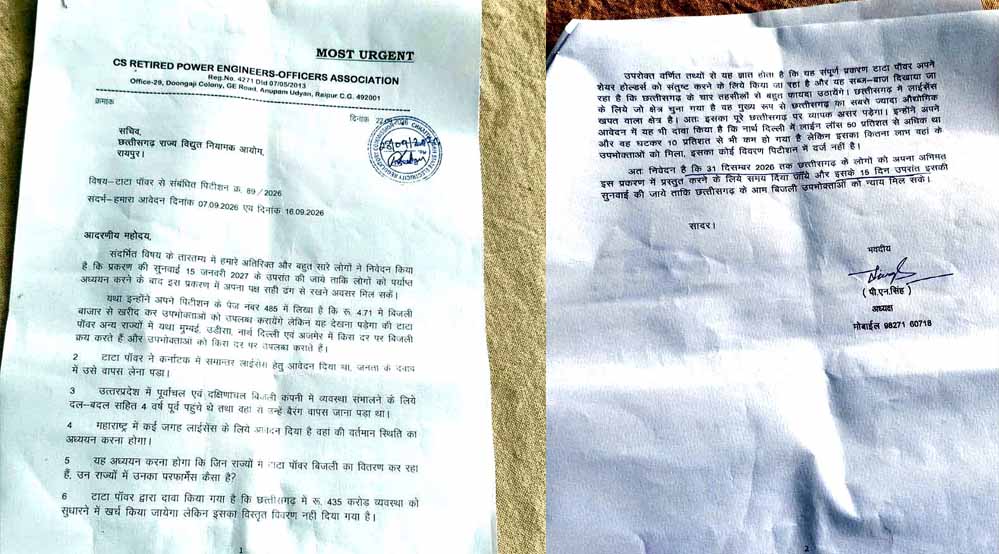 MOST URGENT
CS RETIRED POWER ENGINEERS-OFFICERS ASSOCIATION
Reg.No. 4271 Dtd 07/05/2013
Office-29, Doongaji Colony, GE Road, Anupam Udyan, Raipur C.G. 492001
क्रमाक
दिनाक 22.09.2026
सचिव,
छत्तीसगढ़ राज्य विद्युत नियामक आयोग,
रायपुर।
विषय–टाटा पॉवर से संबंधित पिटीशन क्र. 89/2026
संदर्भ–हमारा आवेदन दिनांक 07.09.2026 एवं दिनांक 16.09.2026
आदरणीय महोदय,
संदर्भित विषय के तारतम्य में हमारे अतिरिक्त और बहुत सारे लोगों ने निवेदन किया
है कि प्रकरण की सुनवाई 15 जनवरी 2027 के उपरांत की जाये ताकि लोगों को पर्याप्त
अध्ययन करने के बाद इस प्रकरण में अपना पक्ष सही ढंग से रखने अवसर मिल सकें।
यथा इन्होंने अपने पिटीशन के पेज नंबर 485 में लिखा है कि रू. 4.71 में बिजली
बाजार से खरीद कर उपभोक्ताओं को उपलब्ध करायेंगे लेकिन यह देखना पड़ेगा की टाटा
पॉवर अन्य राज्यों में यथा मुम्बई, उडीसा, नार्थ दिल्ली एवं अजमेर में किस दर पर बिजली
क्रय करते हैं और उपभोक्ताओं को किस दर पर उपलब्ध कराते हैं।
2 टाटा पॉवर ने कर्नाटक में समान्तर लाईसेंस हेतु आवेदन दिया था, जनता के दवाब
में उसे वापस लेना पड़ा।
3 उत्तरप्रदेश में पूर्वाचल एवं दक्षिणाचल बिजली कंपनी में व्यवस्था संभालने के लिये
दल–बदल सहित 4 वर्ष पूर्व पहुंचे थे तथा वहा से उन्हें बैरंग वापस जाना पड़ा था।
4 महाराष्ट्र में कई जगह लाईसेंस के लिये आवदन दिया है वहां की वर्तमान स्थिति का
अध्ययन करना होगा।
5 यह अध्ययन करना होगा कि जिन राज्यों में टाटा पॉवर बिजली का वितरण कर रहा
हैं, उन राज्यों में उनका परफार्मेस कैसा है?
6 टाटा पॉवर द्वारा दावा किया गया है कि छत्तीसगढ़ में रू. 435 करोड़ व्यवस्था को
सुधारने में खर्च किया जायेगा लेकिन इसका विस्तृत विवरण नहीं दिया गया है।
1
उपरोक्त वर्णित तथ्यों से यह ज्ञात होता है कि यह संपूर्ण प्रकरण टाटा पॉवर अपने
शेयर होल्डर्स को संतुष्ट करने के लिये किया जा रहा है और यह सब्ज–बाज़ दिखाया जा
रहा है कि छत्तीसगढ़ के चार तहसीलों से बहुत फायदा उठायेंगे। छत्तीसगढ़ में लाईसेंस
के लिए जो क्षेत्र चुना गया है वह मुख्य रूप से छत्तीसगढ़ का सबसे ज्यादा औद्योगिक
खपत वाला क्षेत्र है। अतः इसका पूरे छत्तीसगढ़ पर व्यापक असर पड़ेगा। इन्होंने अपने
आवेदन में यह भी दावा किया है कि नार्थ दिल्ली में लाईन लॉस 50 प्रतिशत से अधिक था
और वह घटकर 10 प्रतिशत से भी कम हो गया है लेकिन इसका कितना लाभ वहां के
उपभोक्ताओं को मिला, इसका कोई विवरण पिटीशन में दर्ज नहीं है।
अतः निवेदन है कि 31 दिसम्बर 2026 तक छत्तीसगढ़ के लोगों को अपना अभिमत
इस प्रकरण में प्रस्तुत करने के लिए समय दिया जाये और इसके 15 दिन उपरांत इसकी
सुनवाई की जाये ताकि छत्तीसगढ़ के आम बिजली उपभोक्ताओं को न्याय मिल सकें।
सादर।
भवदीय
(पी.एन.सिंह)
अध्यक्ष
मोबाईल 98271 60718
2